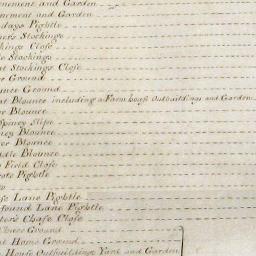 and Garden
and Garden
days Pightle
Stockings
kings Close
Stockings
Stockings Close
Ground
Ground
Blounce including a Farm house Outbuildings and Garden
Blounce
Spiney Slipe
Blounce
Blounce
Blounce
Field Close
Pightle
Lane Pightle
found Lane Pightle
Chase Close
Ground
Home Ground
House Outbuildings Yard and Garden